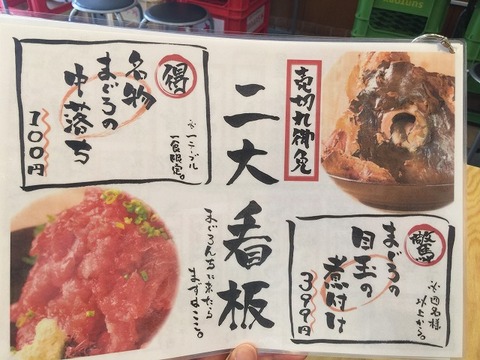 得
名物
まぐろの
中落ち
100円
※一テーブル
一食限定。
売切れ御免
二大看板
まぐろんちに来たら
まずはここ。
驚
まぐろの
目玉の
煮付け
399円
※四名様
以上から。